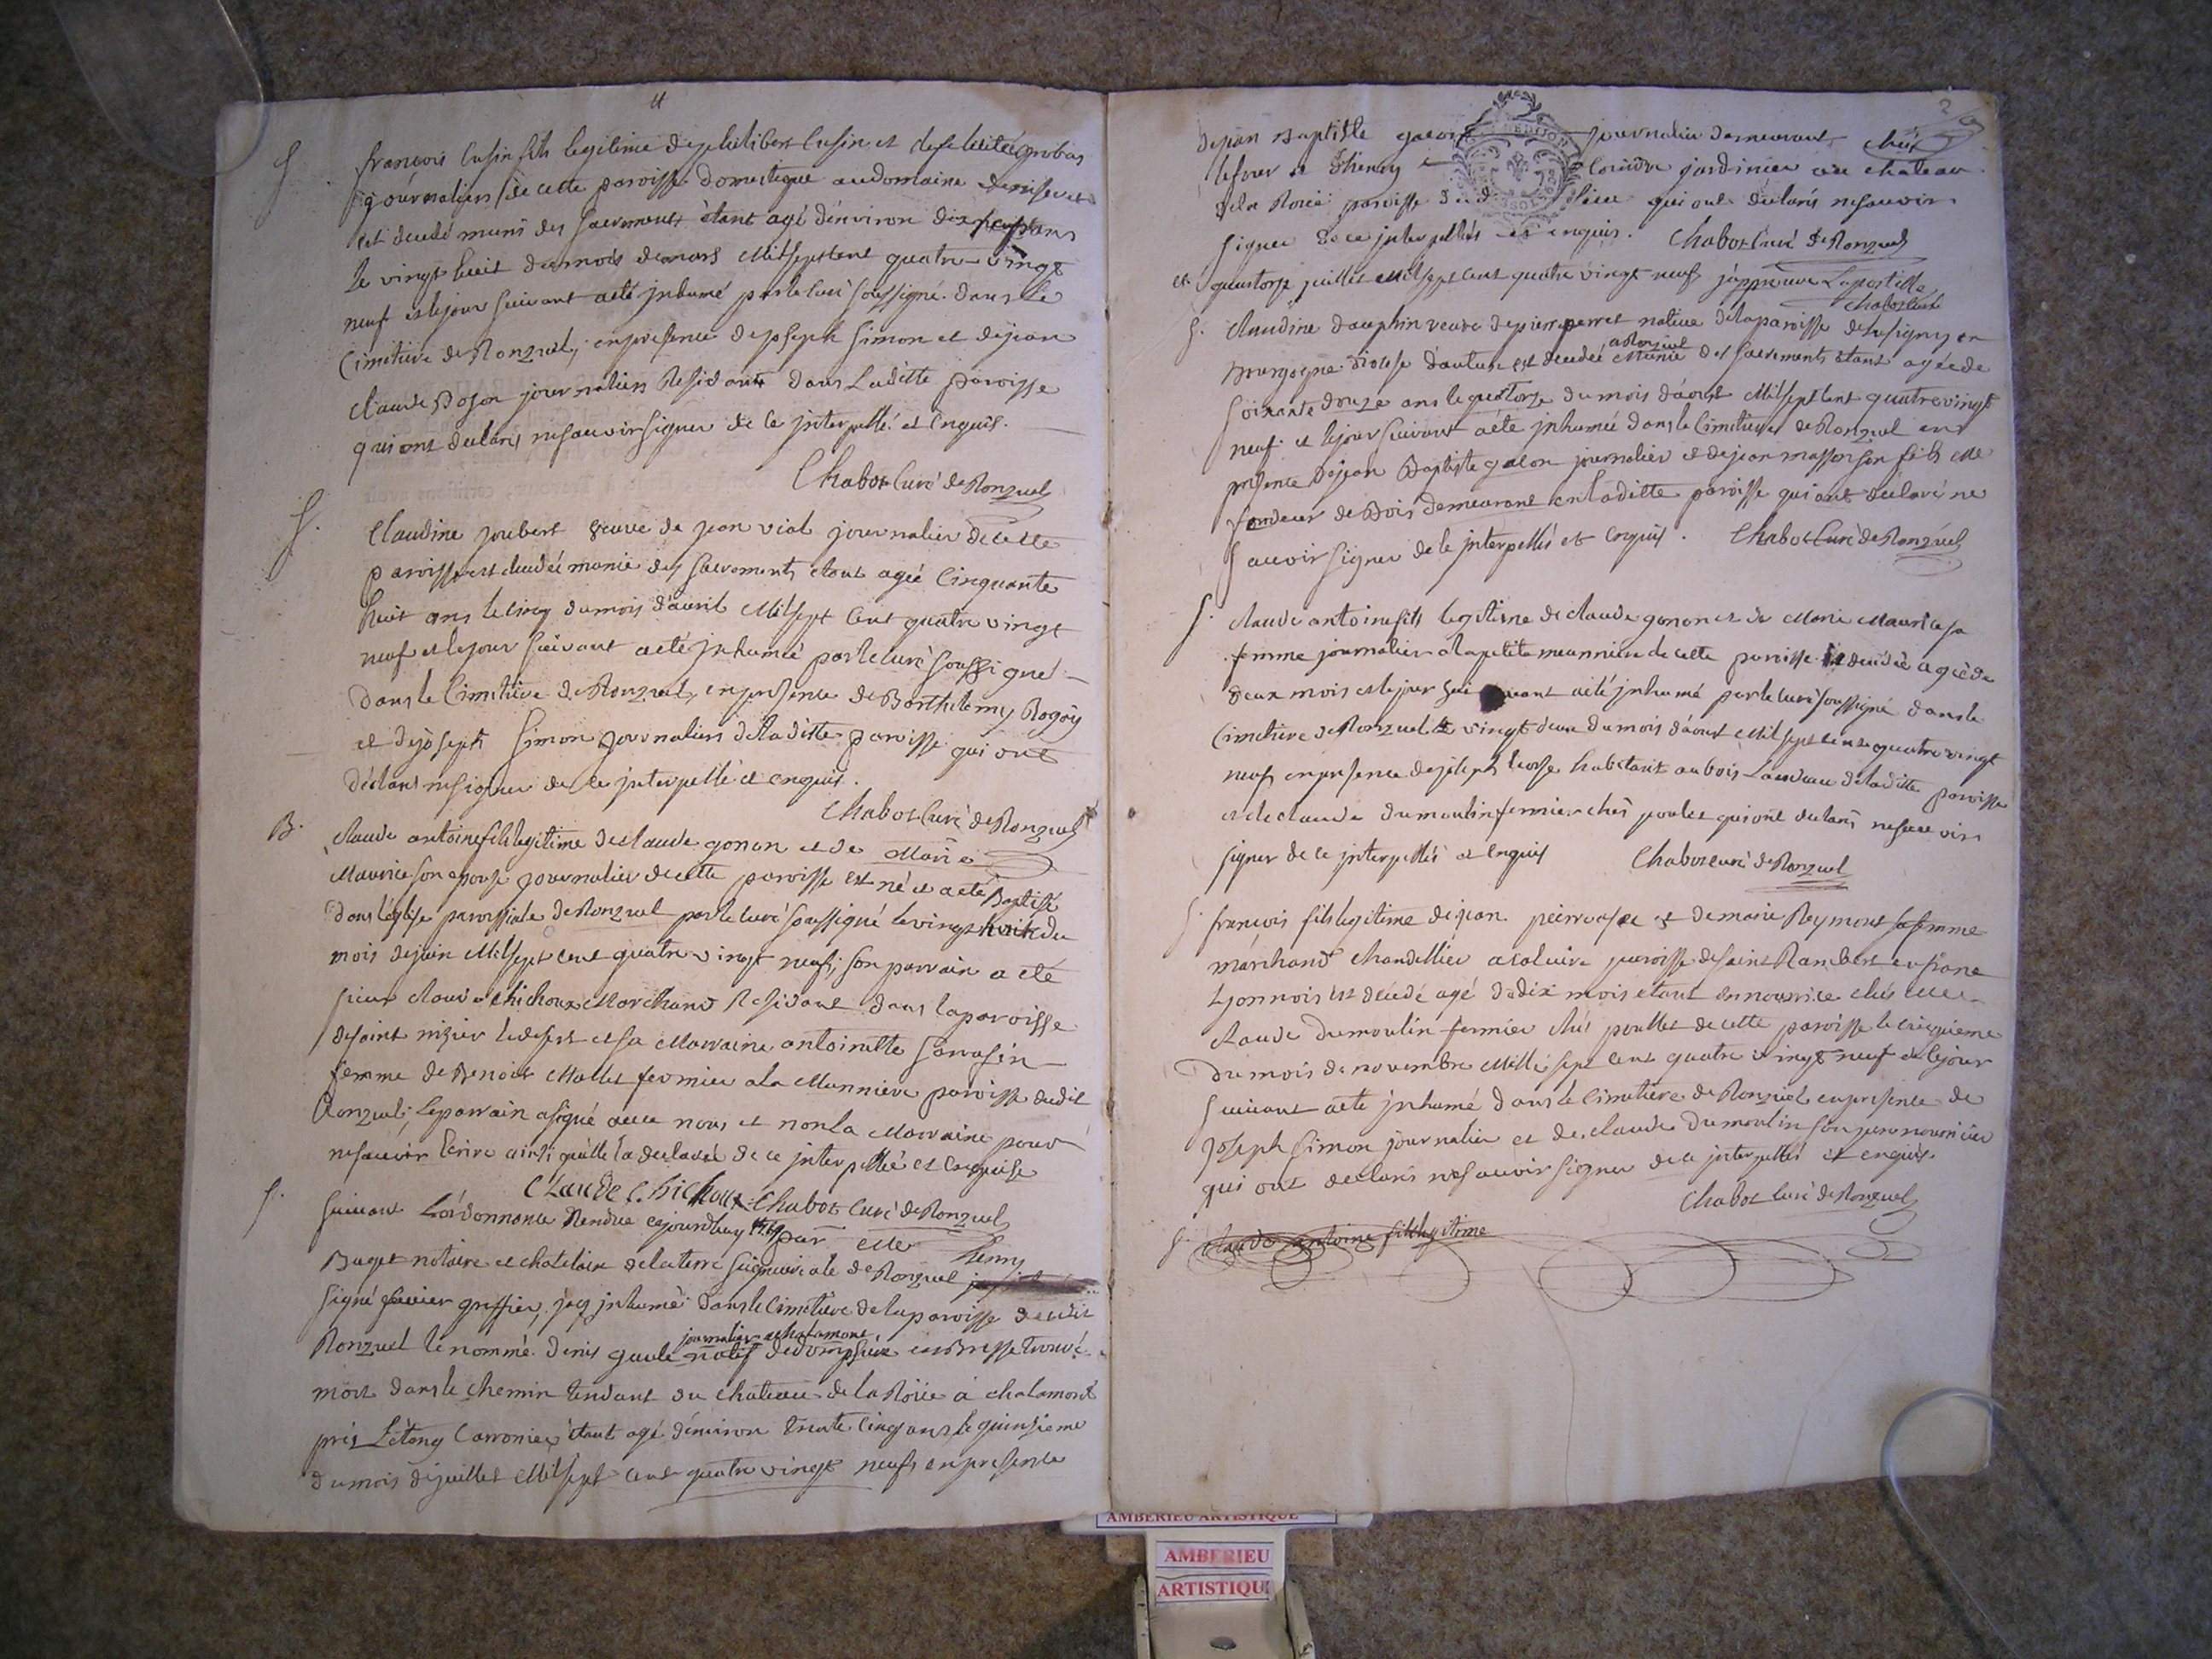 S. françois Cusin fils legitime de philibert Cusin et de
journaliers de cette paroisse domestique au domaine
est decedé muni des sacrements étant agé d'environ dix sept ans
le vingt huit du mois de mars Mil sept cent quatre vingt
neuf et le jour suivant a eté inhumé par le curé soussigné dans le
Cimetiere de Ronzuel, en presence de joseph Simon et de jean
claude journaliers Residants dans Laditte paroisse
qui ont declarés ne sauoir signer de ce interpellé et Enquis.
Chabot Curé de Ronzuel
S. Claudine joubert veuve de jean vial journalier de cette
paroisse est decedée munie des sacrements etant agée Cinquante
huit ans le cinq du mois d'auril Mil sept Cent quatre vingt
neuf et le jour suivant a eté inhumée par le curé soussigné
dans le Cimetiere de Ronzuel, en presence de Barthelemy
et de joseph Simon journaliers de la ditte paroisse qui ont
déclarés ne signer de ce interpellé et enquis.
Chabot Curé de Ronzuel
B. claude antoine fils legitime de claude gonon et de Marie
Maurice son epouse journalier de cette paroisse est né et a eté Baptisé
dans l'église paroissiale de Ronzuel par le curé soussigné le vingt huit du
mois de juin Mil sept cent quatre vingt neuf, son parrain a eté
sieur claude chichoux Marchand Residant dans la paroisse
de saint nizier le desert et sa Marraine antoinette Sarrasin
femme de Benoit Mallet fermier a la Munniere paroisse dudit
Ronzuel; le parrain a signé auec nous et non la Marraine pour
ne sauoir Ecrire ainsi qu'elle l'a declaré de ce interpellée et enquise
CLaude Chichoux Chabot Curé de Ronzuel
S. Suiuant L'ordonnance Rendue ce jourd'huy par Me henry
notaire et chatelain de la terre seigneuriale de Ronzuel
signé greffier, j'ay inhumé dans le Cimetiere de la paroisse dudit
journalier a chalamont
Ronzuel le nommé denis natif de dompsure en Bresse trouvé
mort dans le chemin tendant du chateau de la Roüe à chalamont
près L'étang Carronier étant agé d'environ trente cinq ans, le quinzieme
du mois de juillet Mil sept cent quatre vingt neuf, en presence
de jean Baptiste galon journalier demeurant chés
jardinier au chateau
de la Roüe paroisse dud lieu qui ont declarés ne sauoir
signer de ce interpellés et enquis. Chabot Curé de Ronzuel
et quatorze juillet Mil sept cent quatre vingt neuf, j'approuve L'apostille
Chabot Curé
S. Claudine dauphin veuve de pierre perret native de la paroisse de en
a Ronzuel
Bourgogne diocese d'autun est decedée Munie des sacrements étant agée de
soixante douze ans le quatorze du mois d'aoust Mil sept cent quatre vingt
neuf et le jour suivant a été inhumée dans le Cimetiere de Ronzuel en
presence de jean Baptiste galon journalier et de jean masson son fils
fendeur de Bois demeurant en laditte paroisse qui ont declaré ne
sauoir signer de ce interpellés et enquis. Chabot Curé de Ronzuel
S. claude antoine fils legitime de claude gonon et de Marie Maurice sa
femme journalier a la petite meunniere de cette paroisse est decédé agé de
deux mois et le jour suivant a eté inhumé par le curé soussigné dans le
Cimetiere de Ronzuel le vingt deux du mois d'aoust Mil sept cent quatre vingt
neuf en presence de joseph habitant au bois de la ditte paroisse
et de claude dumoulin fermier chés poulet qui ont declarés ne sauoir
signer de ce interpellés et enquis Chabot curé de Ronzuel
S. françois fils legitime de jean et de marie Reymont sa femme
marchand chandellier a caluire paroisse de saint Rambert en franc
Lyonnois est décédé agé de dix mois etant en nourrice chés
claude Dumoulin fermier chés poullet de cette paroisse le cinquieme
du mois de novembre Mille sept cent quatre vingt neuf et le jour
suivant a eté inhumé dans le cimetiere de Ronzuel en presence de
joseph Simon journalier et de claude Dumoulin son pere nourricier
qui ont declarés ne sauoir signer de ce interpellés et enquis.
Chabot Curé de Ronzuel
S. claude antoine fils legitime
AMBERIEU ARTISTIQUE
AMBERIEU
ARTISTIQU